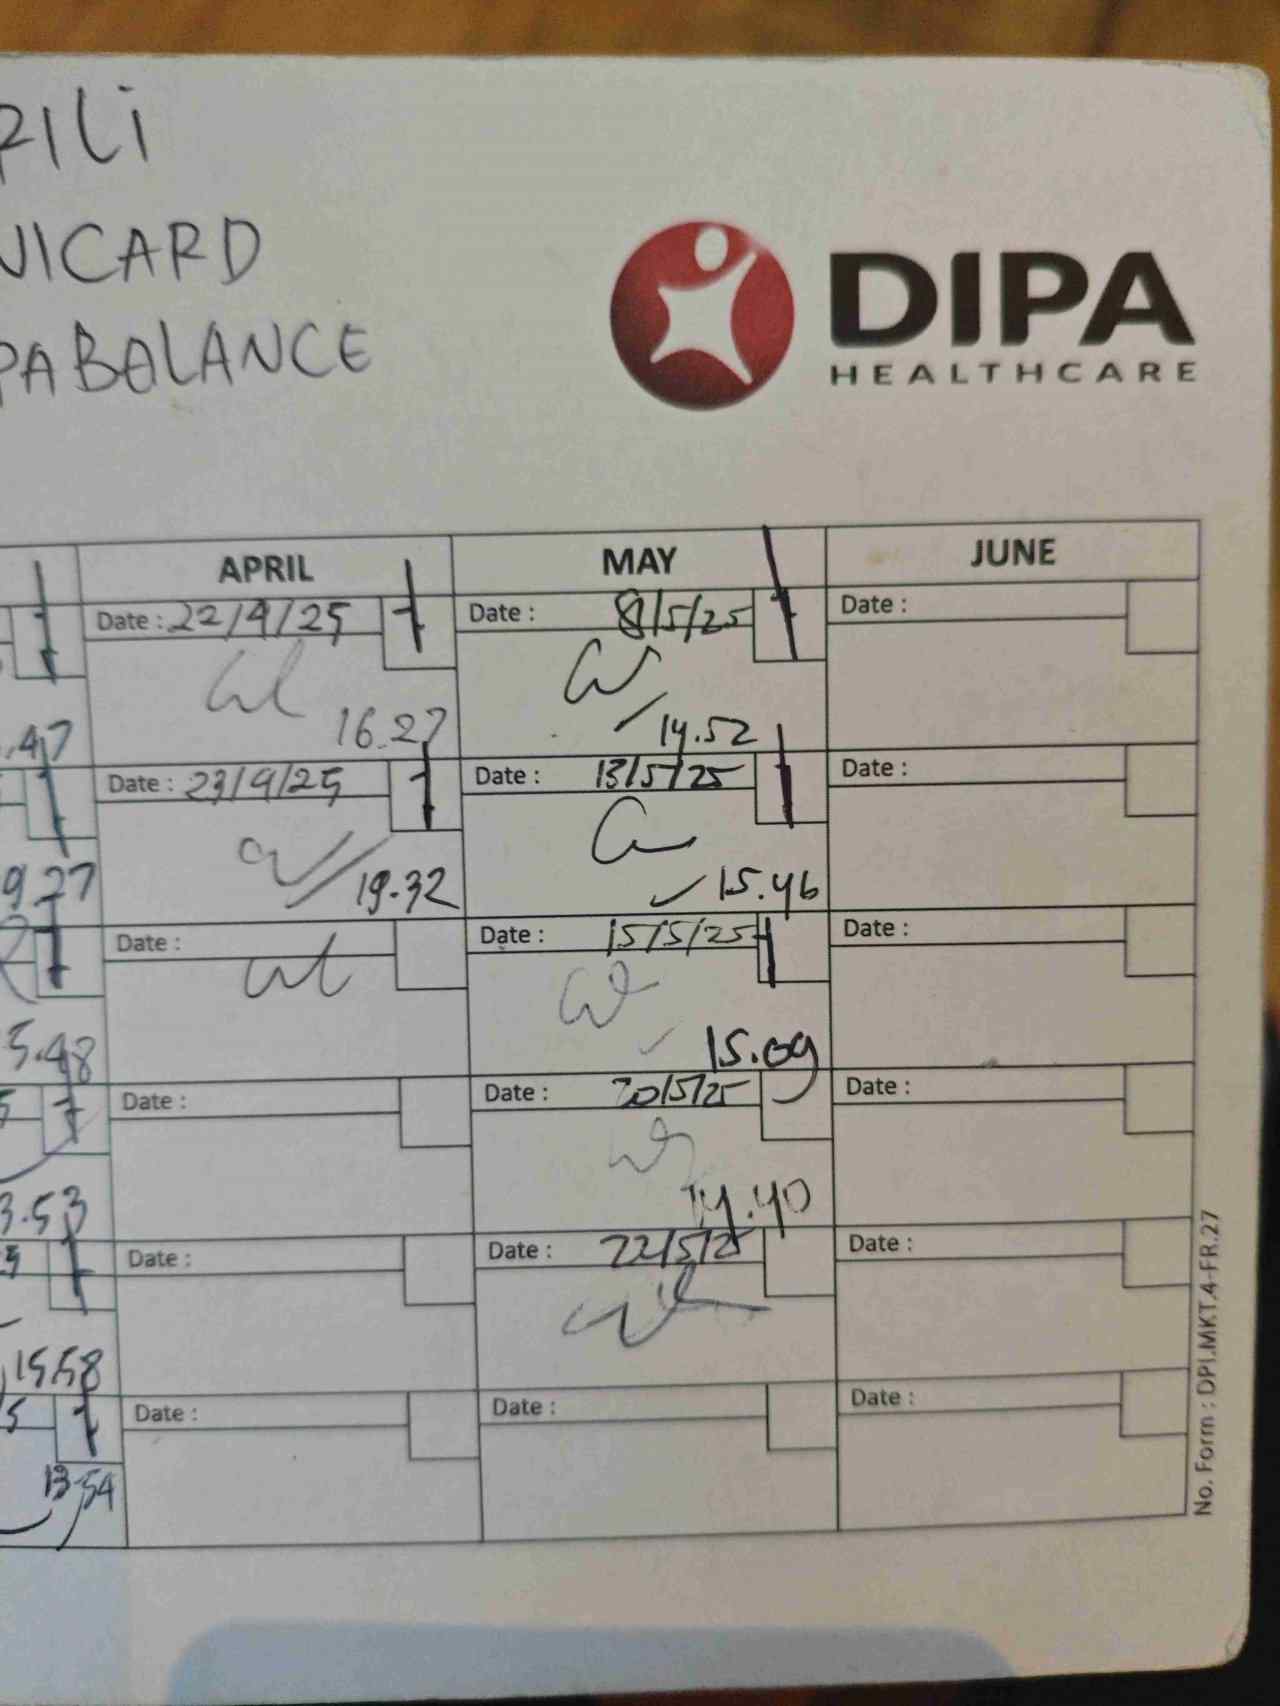 RILI
NICARD
PABALANCE
DIPA
HEALTHCARE
APRIL MAY JUNE
Date : 22/4/25 Date : 8/5/25 Date :
.47 16.27 14.52
Date : 23/4/25 Date : 13/5/25 Date :
9.27 19.32 15.46
Date : Date : 15/5/25 Date :
5.48 15.09
Date : Date : 20/5/25 Date :
3.53 14.40
Date : Date : 22/5/25 Date :
15.58
5 Date : Date : Date :
13.54
No. Form : DPI.MKT.4-FR.27